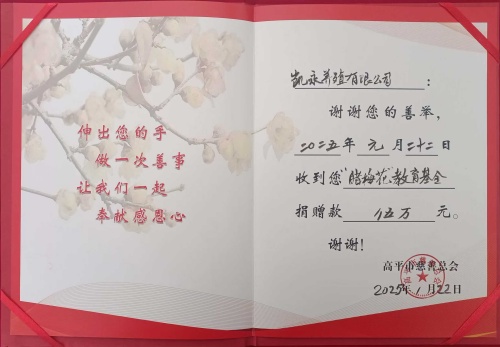 伸出您的手
做一次善事
让我们一起
奉献感恩心
凯永养殖有限公司：
谢谢您的善举，
二〇二五年 元 月 二十二 日
收到您"腊梅花"教育基金
捐赠款 伍万 元。
谢谢！
高平市慈善总会
2025年1月22日